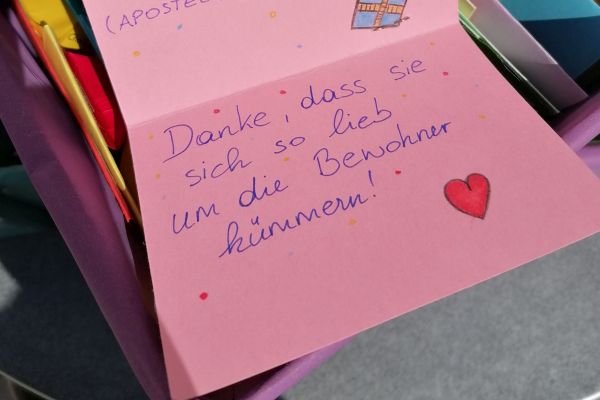 Danke, dass sie
sich so lieb
um die Bewohner
kümmern!